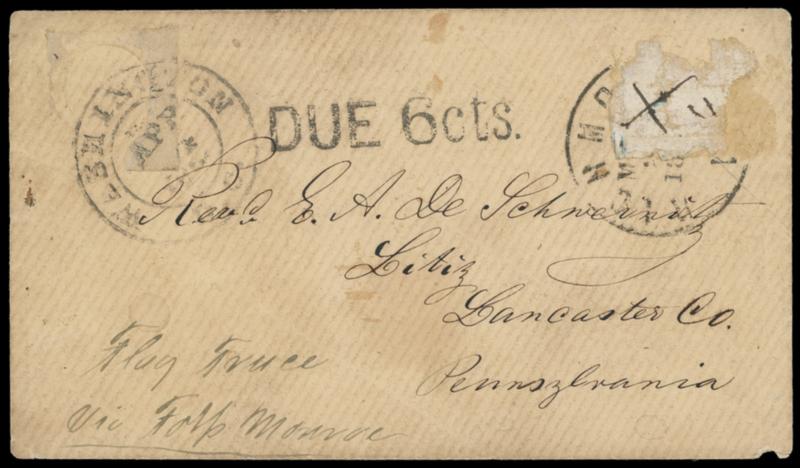 WASHINGTON
APR
DUE 6cts.
Revd. E. A. De Schweinitz
Litiz
Lancaster Co.
Pennszlvania
Flag Truce
Via Fotß Monroe